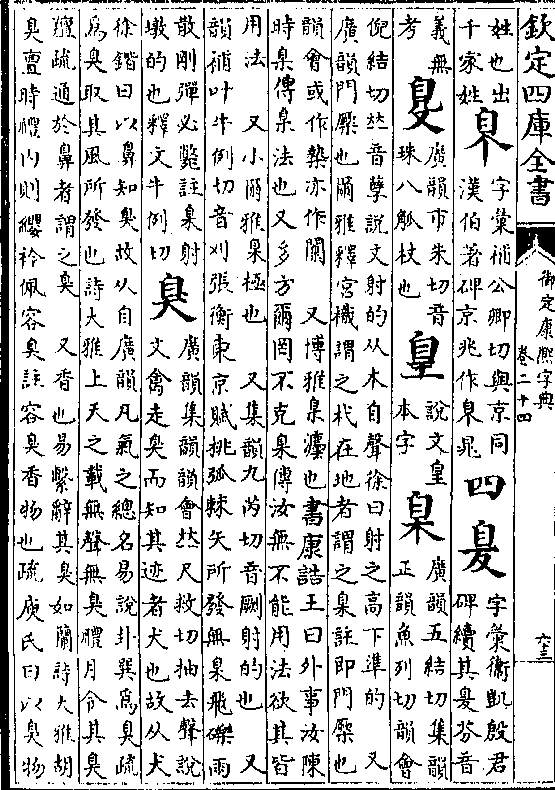 欽定四庫全書
御定康熙字典
卷二十四
六三
姓也出
千家姓
字彙補公卿切與京同
漢伯著碑京兆作
四
字彙衛凱殷君
碑續其夐芬音
義無
考
廣韻市朱切音
殊八觚杖也
說文皇
本字
臬
廣韻五結切集韻
正韻魚列切韻會
倪結切𠀤音孽說文射的从木自聲徐曰射之高下準的 又
廣韻門橛也爾雅釋宮樴謂之杙在地者謂之臬註即門橛也
韻會或作槷亦作闑 又博雅臬灋也書康誥王曰外事汝陳
時臬傳臬法也又多方爾罔不克臬傳汝無不能用法欲其皆
用法 又小爾雅臬極也 又集韻九芮切音劂射的也 又
韻補叶牛例切音刈張衡東京賦桃弧棘矢所發無臬飛礫雨
散剛彈必斃註臬射
墩的也釋文牛例切
臭
廣韻集韻韻會𠀤尺救切抽去聲說
文禽走臭而知其迹者犬也故从犬
徐鍇曰以鼻知臭故从自廣韻凡氣之總名易說卦巽爲臭疏
爲臭取其風所發也詩大雅上天之載無聲無臭禮月令其臭
羶疏通於鼻者謂之臭 又香也易繫辭其臭如蘭詩大雅胡
臭亶時禮內則纓衿佩容臭註容臭香物也疏庾氏曰以臭物